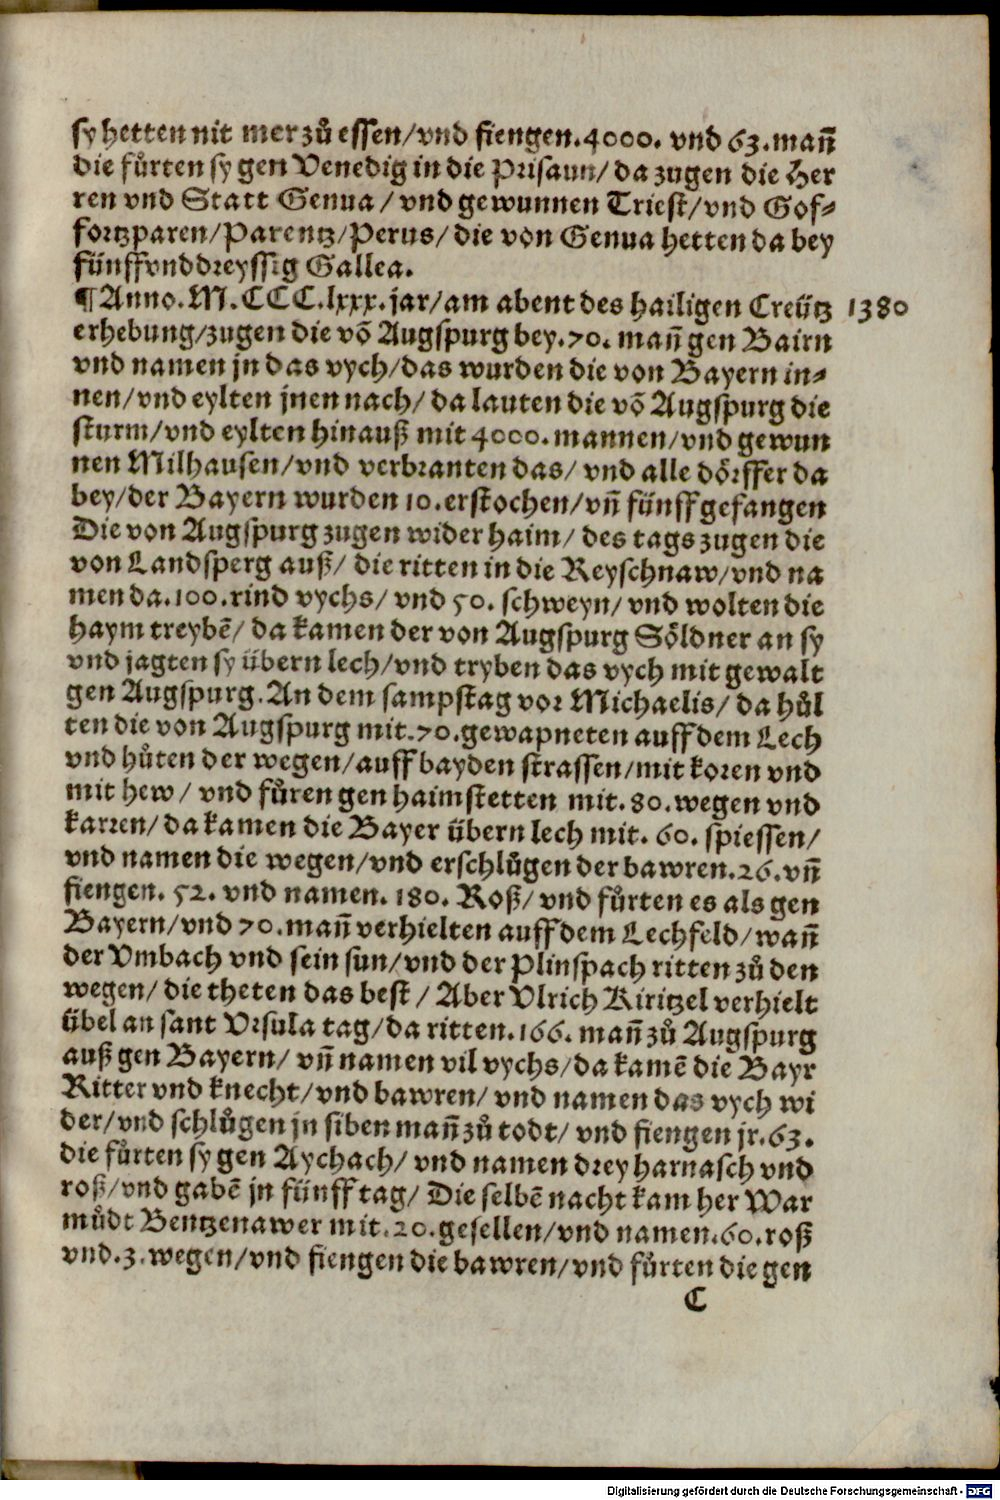 sy hetten nit mer zů essen/vnd fiengen.4000. vnd 63.mañ
die fůrten sy gen Venedig in die Prisaun/ da zugen die Her
ren vnd Statt Genua / vnd gewunnen Triest/vnd Gof-
fortzparen/Parentz/Perus/ die von Genua hetten da bey
fünffvnddreyssig Gallea.
¶ Anno.M.CCC.lxxx.jar/am abent des hailigen Creütz 1380
erhebung/zugen die võ Augspurg bey.70. mañ gen Bairn
vnd namen jn das vych/das wurden die von Bayern in-
nen/vnd eylten jnen nach/ da lauten die võ Augspurg die
sturm/vnd eylten hinauß mit 4000.mannen/vnd gewun
nen Milhausen/vnd verbranten das/ vnd alle dörffer da
bey/der Bayern wurden 10.erstochen/vñ fünff gefangen
Die von Augspurg zugen wider haim/ des tags zugen die
von Landsperg auß/ die ritten in die Reyschnaw/vnd na
men da.100.rind vychs/ vnd 50. schweyn/ vnd wolten die
haym treybẽ/ da kamen der von Augspurg Söldner an sy
vnd jagten sy übern lech/vnd tryben das vych mit gewalt
gen Augspurg.An dem sampstag vor Michaelis/ da hůl
ten die von Augspurg mit.70.gewapneten auff dem Lech
vnd hůten der wegen/auff bayden strassen/mit koren vnd
mit hew/ vnd fůren gen haimstetten mit.80.wegen vnd
karren/ da kamen die Bayer übern lech mit. 60. spiessen/
vnd namen die wegen/vnd erschlůgen der bawren.26.vñ
fiengen. 52. vnd namen. 180. Roß/ vnd fůrten es als gen
Bayern/vnd 70.mañ verhielten auff dem Lechfeld/wañ
der Vmbach vnd sein sun/vnd der Plinspach ritten zů den
wegen/ die theten das best / Aber Vlrich Kiritzel verhielt
übel an sant Vrsula tag/da ritten.166. mañ zů Augspurg
auß gen Bayern/ vñ namen vil vychs/da kamẽ die Bayr
Ritter vnd knecht/vnd bawren/ vnd namen das vych wi
der/vnd schlůgen jn siben mañ zů todt/ vnd fiengen jr.63.
die fůrten sy gen Aychach/ vnd namen drey harnasch vnd
roß/vnd gabẽ jn fünff tag/ Die selbẽ nacht kam her War
můdt Bentzenawer mit.20.gesellen/vnd namen.60.roß
vnd.3.wegen/vnd fiengen die bawren/vnd fůrten die gen
C
Digitalisierung gefördert durch die Deutsche Forschungsgemeinschaft - DFG